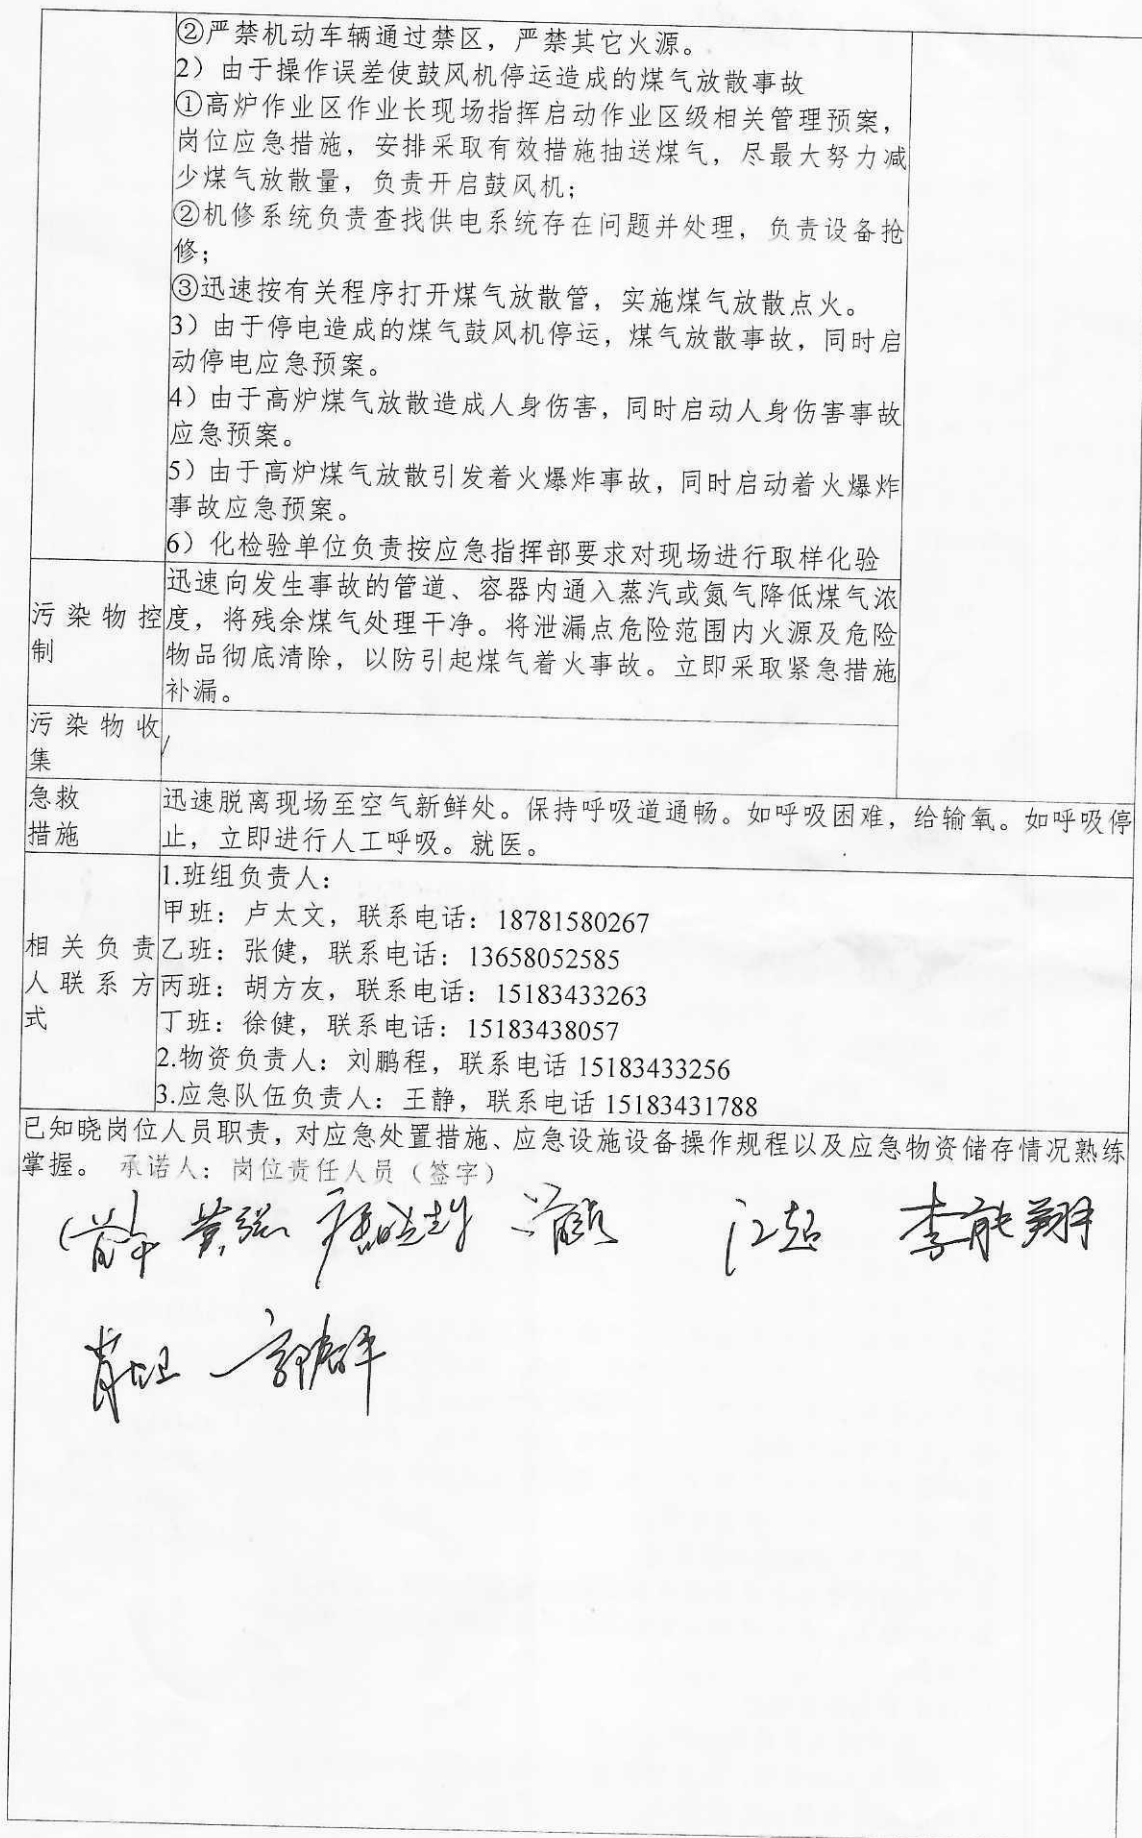 ②严禁机动车辆通过禁区，严禁其它火源。
2）由于操作误差使鼓风机停运造成的煤气放散事故
①高炉作业区作业长现场指挥启动作业区级相关管理预案，
岗位应急措施，安排采取有效措施抽送煤气，尽最大努力减
少煤气放散量，负责开启鼓风机；
②机修系统负责查找供电系统存在问题并处理，负责设备抢
修；
③迅速按有关程序打开煤气放散管，实施煤气放散点火。
3）由于停电造成的煤气鼓风机停运，煤气放散事故，同时启
动停电应急预案。
4）由于高炉煤气放散造成人身伤害，同时启动人身伤害事故
应急预案。
5）由于高炉煤气放散引发着火爆炸事故，同时启动着火爆炸
事故应急预案。
6）化检验单位负责按应急指挥部要求对现场进行取样化验
污染物控
制
迅速向发生事故的管道、容器内通入蒸汽或氮气降低煤气浓
度，将残余煤气处理干净。将泄漏点危险范围内火源及危险
物品彻底清除，以防引起煤气着火事故。立即采取紧急措施
补漏。
污染物收
集
/
急救
措施
迅速脱离现场至空气新鲜处。保持呼吸道通畅。如呼吸困难，给输氧。如呼吸停
止，立即进行人工呼吸。就医。
相关负责
人联系方
式
1.班组负责人：
甲班：卢太文，联系电话：18781580267
乙班：张健，联系电话：13658052585
丙班：胡方友，联系电话：15183433263
丁班：徐健，联系电话：15183438057
2.物资负责人：刘鹏程，联系电话 15183433256
3.应急队伍负责人：王静，联系电话 15183431788
已知晓岗位人员职责，对应急处置措施、应急设施设备操作规程以及应急物资储存情况熟练
掌握。 承诺人：岗位责任人员（签字）
黄强 江超 李能翔
肖坦